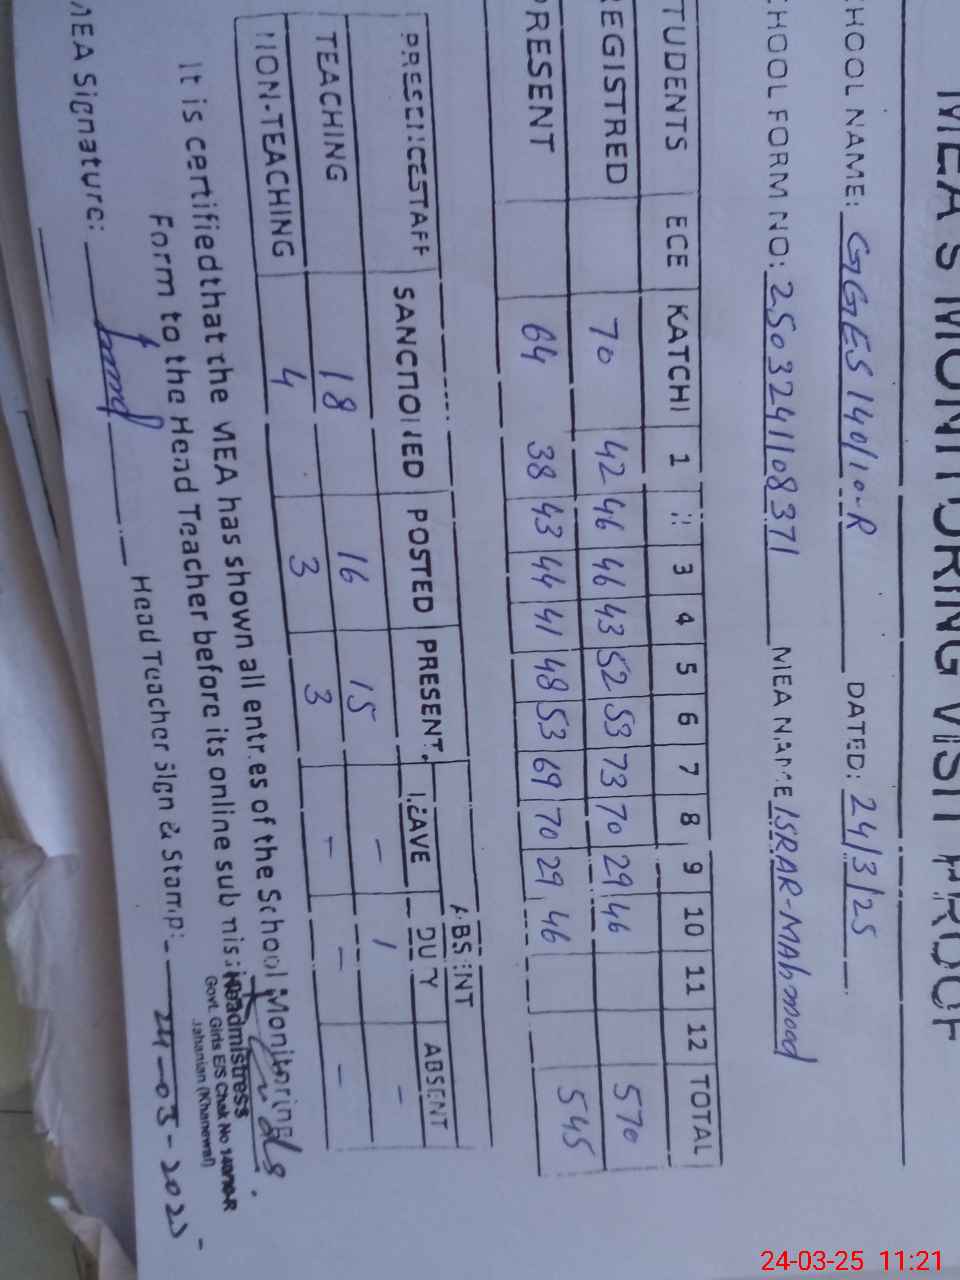 MEA'S MONITORING VISIT PROOF
CHOOL NAME: GGES 140/10-R DATED: 24/3/25
CHOOL FORM NO: 2503241108371 MEA NAME ISRAR-MAhmood
TUDENTS ECE KATCHI 1 3 4 5 6 7 8 9 10 11 12 TOTAL
EGISTRED 70 42 46 46 43 52 53 73 70 29 46 570
PRESENT 64 38 43 44 41 48 53 69 70 29 46 545
PRESENCE STAFF SANCTIONED POSTED PRESENT ABSENT
LEAVE DUTY ABSENT
TEACHING 18 16 15 - 1 -
NON-TEACHING 4 3 3 - - -
It is certified that the MEA has shown all entries of the School Monitoring
Form to the Head Teacher before its online submis
Headmistress
Govt. Girls E/S Chak No 140/10-R
Jahanian (Khanewal)
MEA Signature: Head Teacher Sign & Stamp: 24-03-2025
24-03-25 11:21